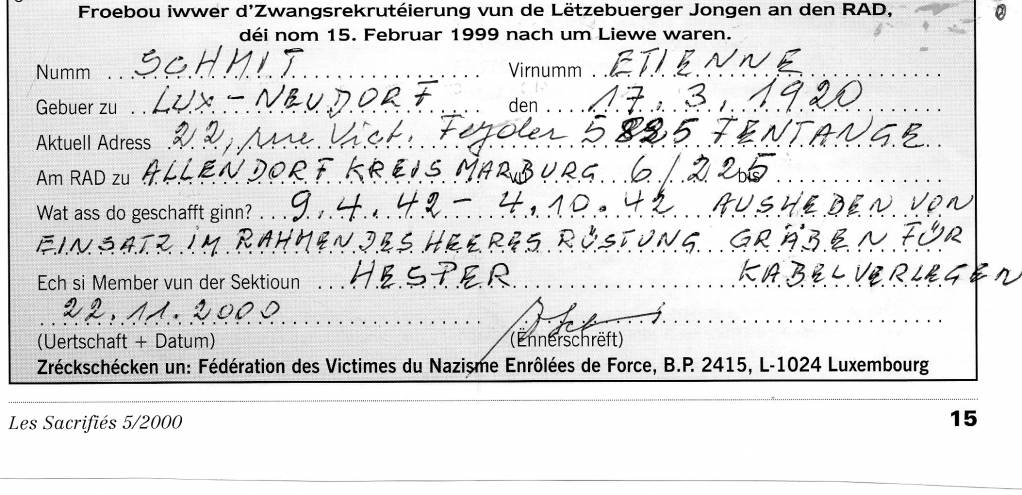 Froebou iwwer d'Zwangsrekrutéierung vun de Lëtzebuerger Jongen an den RAD,
déi nom 15. Februar 1999 nach um Liewe waren.
Numm SCHMIT Virnumm ETIENNE
Gebuer zu LUX-NEUDORF den 17.3.1920
Aktuell Adress 22, rue Vict. Feyder 5825 FENTANGE
Am RAD zu ALLENDORF KREIS MARBURG vu 6/225 bis
Wat ass do geschafft ginn? 9.4.42 - 4.10.42 AUSHEBEN VON
EINSATZ IM RAHMEN DES HEERES RÜSTUNG GRÄBEN FÜR
Ech si Member vun der Sektioun HESPER KABELVERLEGEN
22.11.2000
(Uertschaft + Datum) (Ënnerschrëft)
Zréckschécken un: Fédération des Victimes du Nazisme Enrôlées de Force, B.P. 2415, L-1024 Luxembourg
Les Sacrifiés 5/2000 15